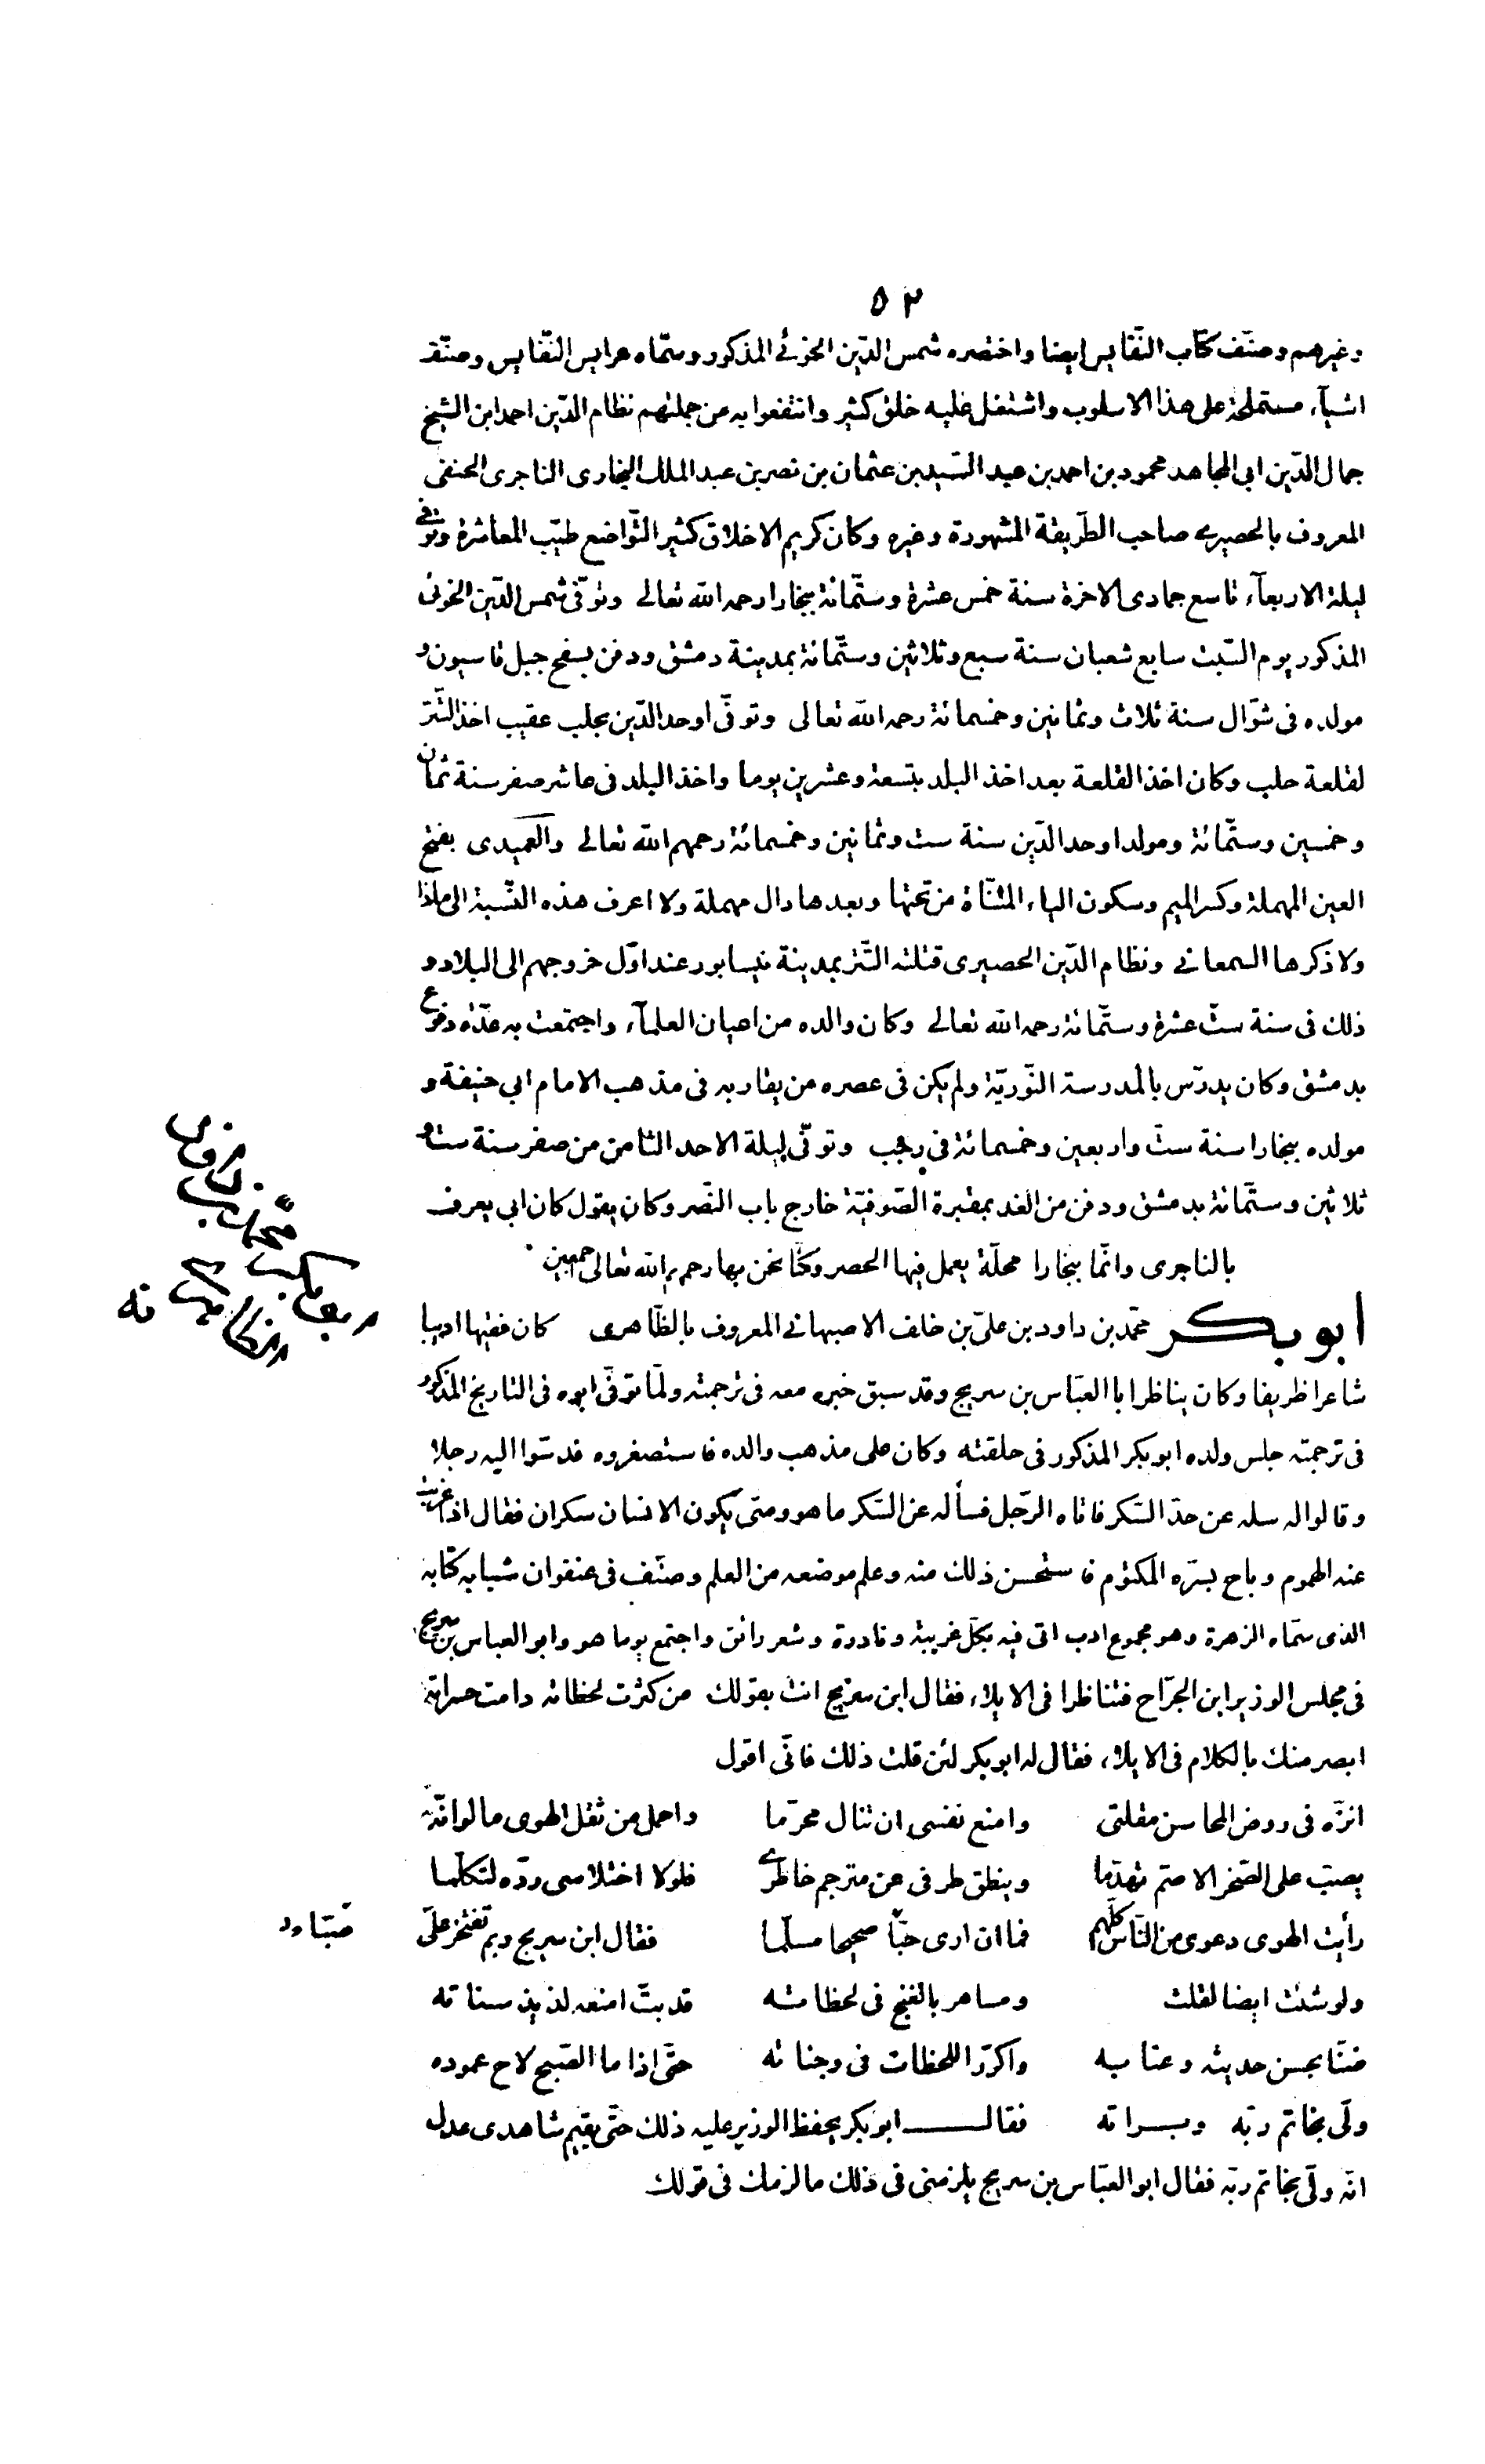 ٥٢
وغيرهم وصنّف كتاب النّفايس ايضا واختصره شمس الدّين الخوئے المذكور وسمّاه عرايس النّفايس وصنّف
اشيآء مستملحة على هذا الاسلوب واشتغل عليه خلق كثير وانتفعوا به من جملتهم نظام الدّين احمد ابن الشيخ
جمال الدّين ابى المجاهد محمود بن احمد بن عبد السّيد بن عثمان بن نصر بن عبد الملك البخارى التاجرى الحنفى
المعروف بالحصيرے صاحب الطّريقة المشهورة وغيره وكان كريم الاخلاق كثير التّواضع طيّب المعاشرة وتوفّے
ليلة الاربعآء تاسع جمادى الاخرة سنة خمس عشرة وستّمائة ببخارا رحمه الله تعالى وتوفّى شمس الدّين الخوئى
المذكور يوم السّبت سابع شعبان سنة سبع وثلاثين وستّمائة بمدينة دمشق ودفن بسفح جبل قاسيون و
مولده فى شوّال سنة ثلاث وثمانين وخمسمائة رحمه الله تعالى وتوفّى اوحد الدّين بحلب عقيب اخذ التّتر
لقلعة حلب وكان اخذ القلعة بعد اخذ البلد بتسعة وعشرين يوما واخذ البلد فى عاشر صفر سنة ثمان
وخمسين وستّمائة ومولد اوحد الدّين سنة ست وثمانين وخمسمائة رحمهم الله تعالى والعميدى بفتح
العين المهملة وكسر الميم وسكون الياء المثنّاة من تحتها وبعدها دال مهملة ولا اعرف هذه النّسبة الى ماذا
ولا ذكرها السمعانے ونظام الدّين الحصيرى قتلته التّتر بمدينة نيسابور عند اوّل خروجهم الى البلاد و
ذلك فى سنة ستّ عشرة وستّمائة رحمه الله تعالى وكان والده من اعيان العلمآء واجتمعت به عدّة دفوع
بدمشق وكان يدرّس بالمدرسة النّوريّة ولم يكن فى عصره من يقاربه فى مذهب الامام ابى حنيفة و
مولده ببخارا سنة ستّ واربعين وخمسمائة فى رجب وتوفّى ليلة الاحد الثامن من صفر سنة ستّ و
ثلاثين وستّمائة بدمشق ودفن من الغد بمقبرة الصّوفيّة خارج باب النّصر وكان يقول كان ابى يعرف
بالتاجرى وانّما ببخارا محلّة يعمل فيها الحصر وكنّا نحن بها رحمهم الله تعالى اجمعين
ابو بكر محمّد بن داود بن علىّ بن خلف الاصبهانے المعروف بالظّاهرى كان فقيها اديبا
شاعرا ظريفا وكان يناظر ابا العبّاس بن سريج وقد سبق خبره معه فى ترجمته ولمّا توفّى ابوه فى التاريخ المذكور
فى ترجمته جلس ولده ابو بكر المذكور فى حلقته وكان على مذهب والده فاستصغروه فدسّوا اليه رجلا
وقالوا له سله عن حدّ السّكر فاتاه الرّجل فسأله عن السّكر ما هو ومتى يكون الانسان سكران فقال اذا عزبت
عنه الهموم وباح بسرّه المكتوم فاستحسن ذلك منه وعلم موضعه من العلم وصنّف فى عنفوان شبابه كتابه
الذى سمّاه الزهرة وهو مجموع ادب اتى فيه بكلّ غريبة ونادرة وشعر رائق واجتمع يوما هو وابو العباس بن سريج
فى مجلس الوزير ابن الجرّاح فتناظرا فى الايلاء فقال ابن سريج انت بقولك من كثرت لحظاته دامت حسراته
ابصر منك بالكلام فى الايلاء فقال له ابو بكر لئن قلت ذلك فانّى اقول
انزّه فى روض المحاسن مقلتى وامنع نفسى ان تنال محرّما واحمل من ثقل الهوى ما لو انّه
يصبّ على الصّخر الاصمّ تهدّما وينطق طرفى عن مترجم خاطرے فلولا اختلاسى ردّه لتكلّما
رأيت الهوى دعوى من النّاس كلّهم فما ان ارى حبّا صحيحا مسلّما فقال ابن سريج وبم تفتخر علىّ
ولو شئت ايضا لقلت ومساهر بالغنج فى لحظاته قد بتّ امنعه لذيذ سناته
ضنّا بحسن حديثه وعتابه واكرّر اللحظات فى وجناته حتّى اذا ما الصّبح لاح عموده
ولّى بخاتم ربّه وبراته فقال ابو بكر يحفظ الوزير عليه ذلك حتّى يقيم شاهدى عدل
انّه ولّى بخاتم ربّه فقال ابو العبّاس بن سريج يلزمنى فى ذلك ما لزمك فى قولك